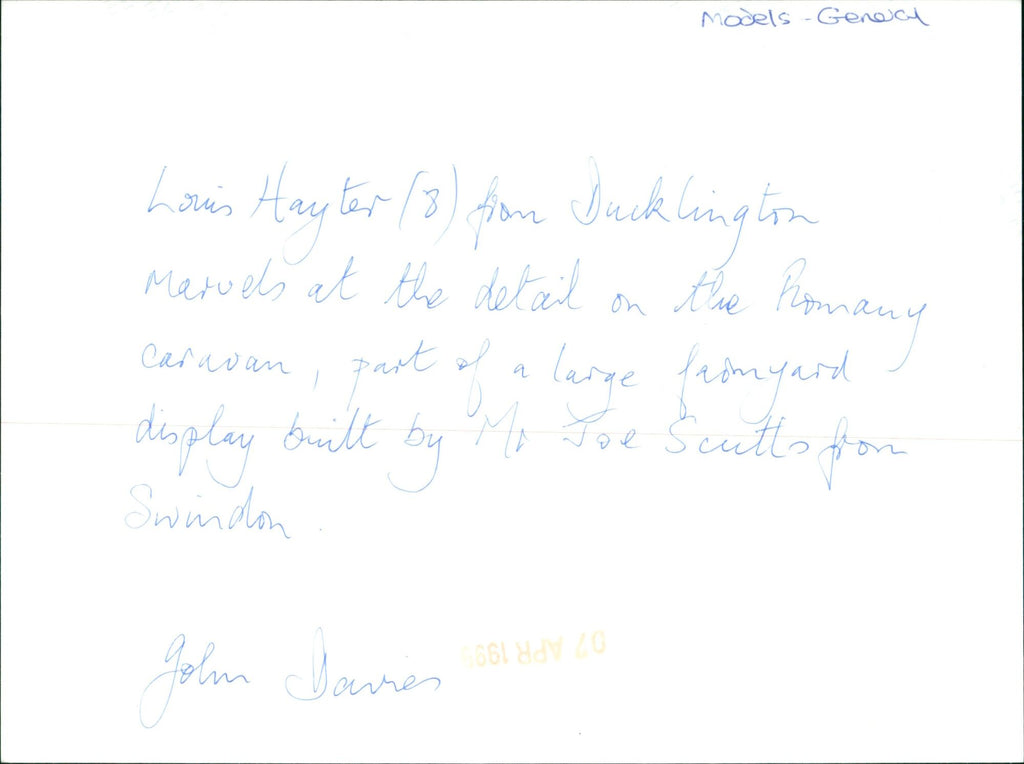 Models - General
Louis Hayter (8) from Ducklington
marvels at the detail on the Romany
caravan, part of a large farmyard
display built by Mr Joe Scutts from
Swindon.
John Davies
07 APR 1995